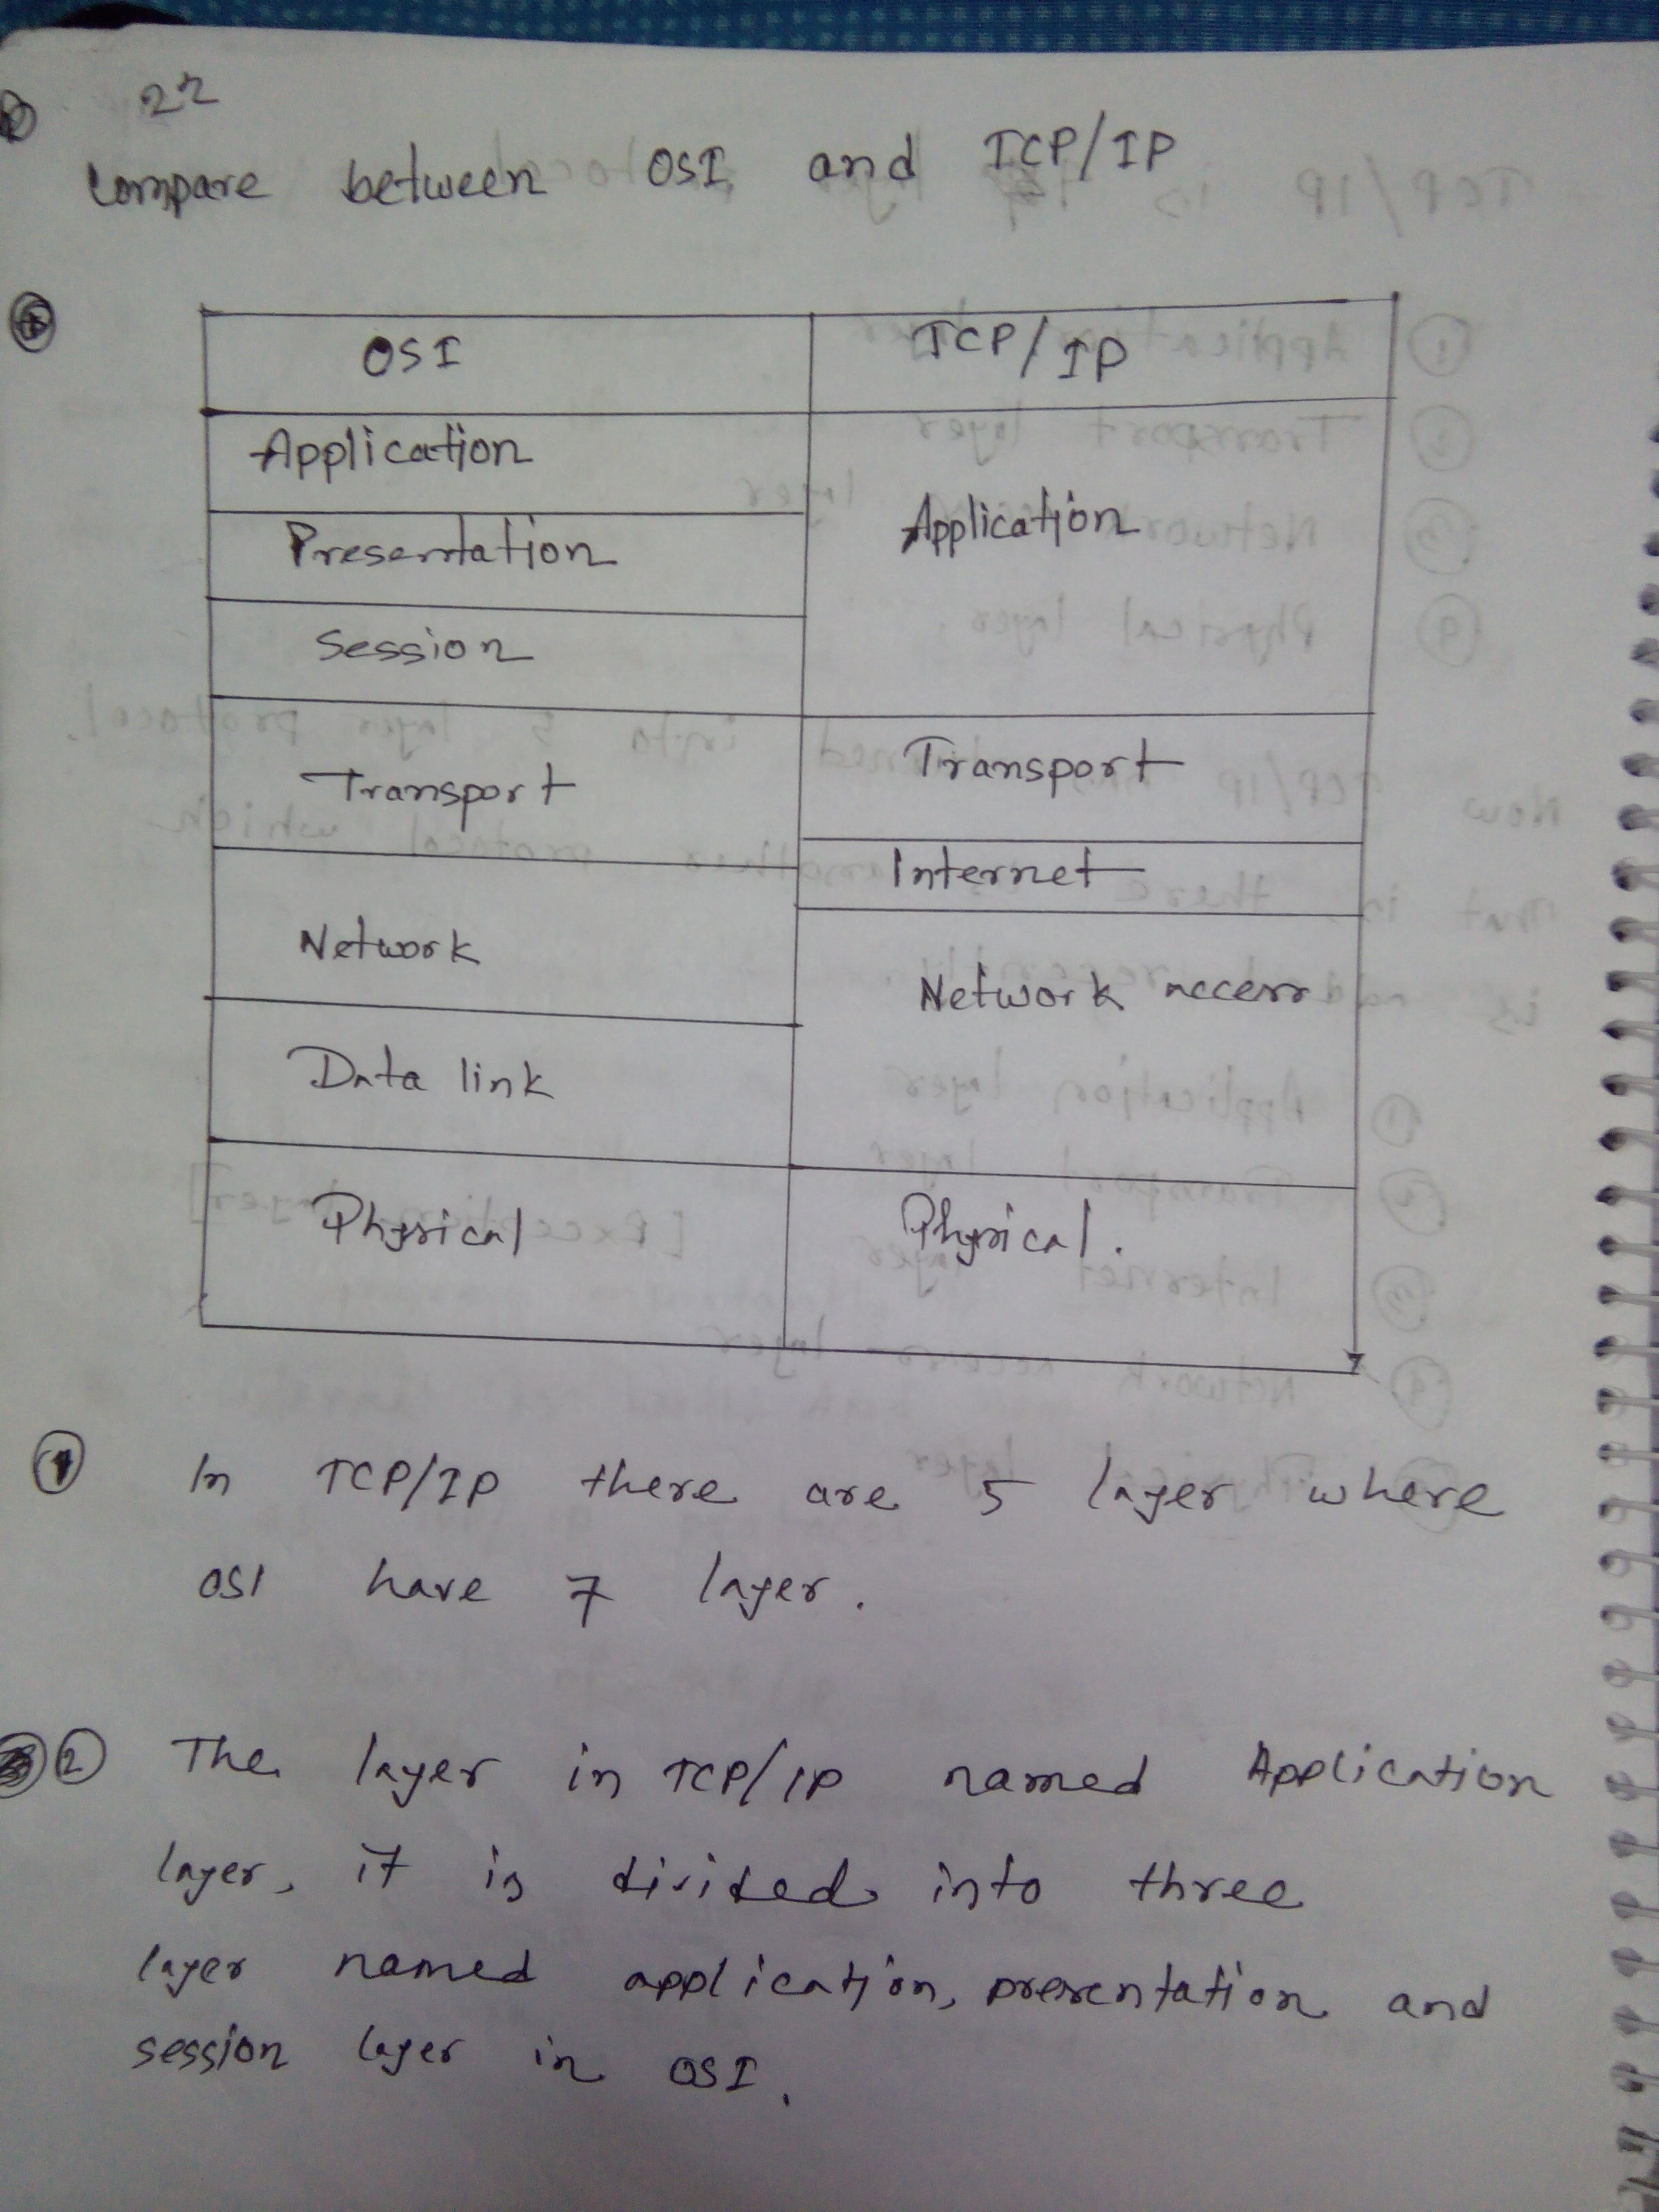 22
Compare between OSI and TCP/IP
OSI TCP/IP
Application
Presentation
Application
Session
Transport
Transport
Internet
Network
Network access
Data link
Physical
Physical.
① In TCP/IP there are 5 layer where
OSI have 7 layer.
② The layer in TCP/IP named Application
layer, it is divided into three
layer named application, presentation and
session layer in OSI.